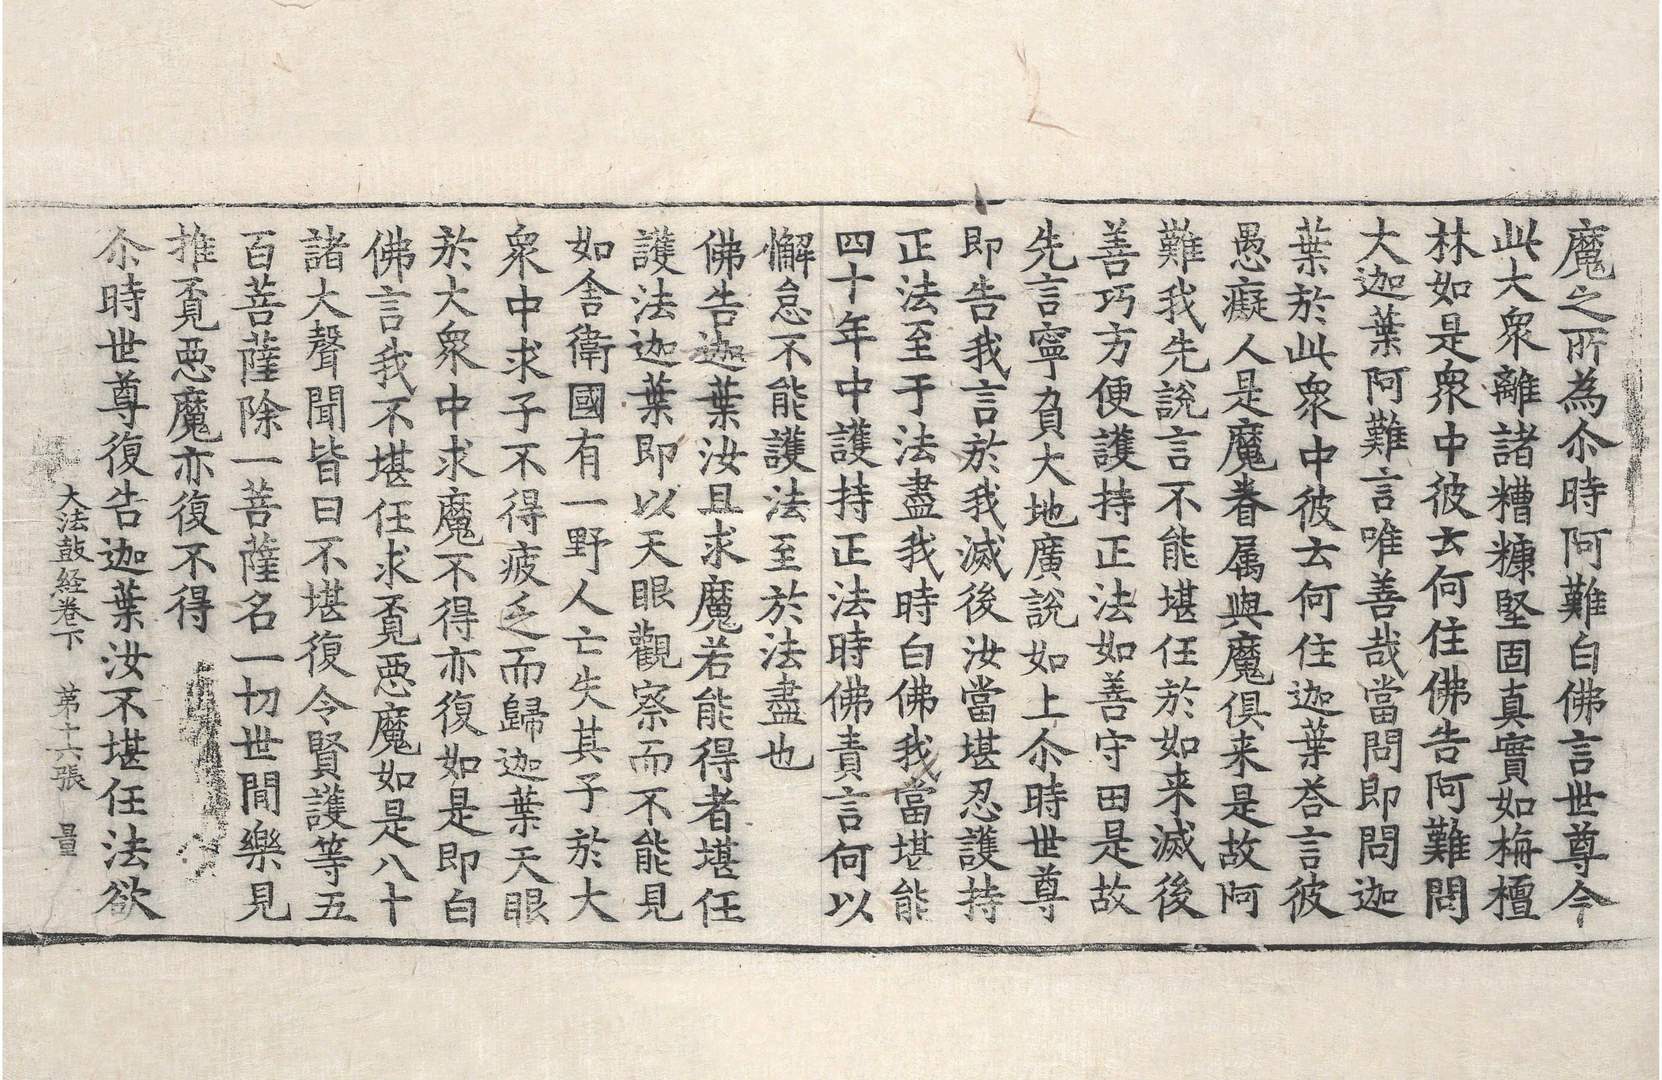 魔之所為尒時阿難白佛言世尊今
此大衆離諸糟糠堅固真實如栴檀
林如是衆中彼云何住佛告阿難問
大迦葉阿難言唯善哉當問即問迦
葉於此衆中彼云何住迦葉荅言彼
愚癡人是魔眷属與魔俱来是故阿
難我先說言不能堪任於如来滅後
善巧方便護持正法如善守田是故
先言寧負大地廣說如上尒時世尊
即告我言於我滅後汝當堪忍護持
正法至于法盡我時白佛我當堪能
四十年中護持正法時佛責言何以
懈怠不能護法至於法盡也
佛告迦葉汝且求魔若能得者堪任
護法迦葉即以天眼觀察而不能見
如舍衛國有一野人亡失其子於大
衆中求子不得疲乏而歸迦葉天眼
於大衆中求魔不得亦復如是即白
佛言我不堪任求覔惡魔如是八十
諸大聲聞皆曰不堪復令賢護等五
百菩薩除一菩薩名一切世間樂見
推覔惡魔亦復不得
尒時世尊復告迦葉汝不堪任法欲
大法鼓経卷下 第十六張 量